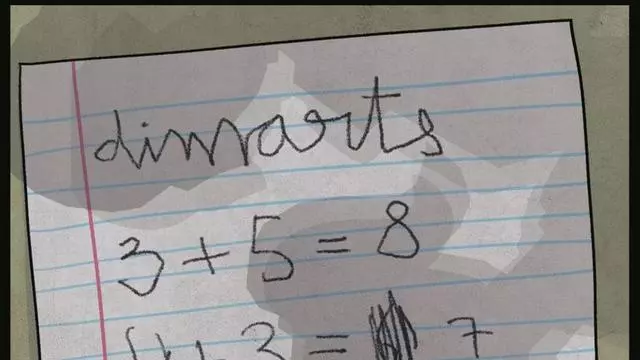 dimarts
3 + 5 = 8
4 + 3 = 7